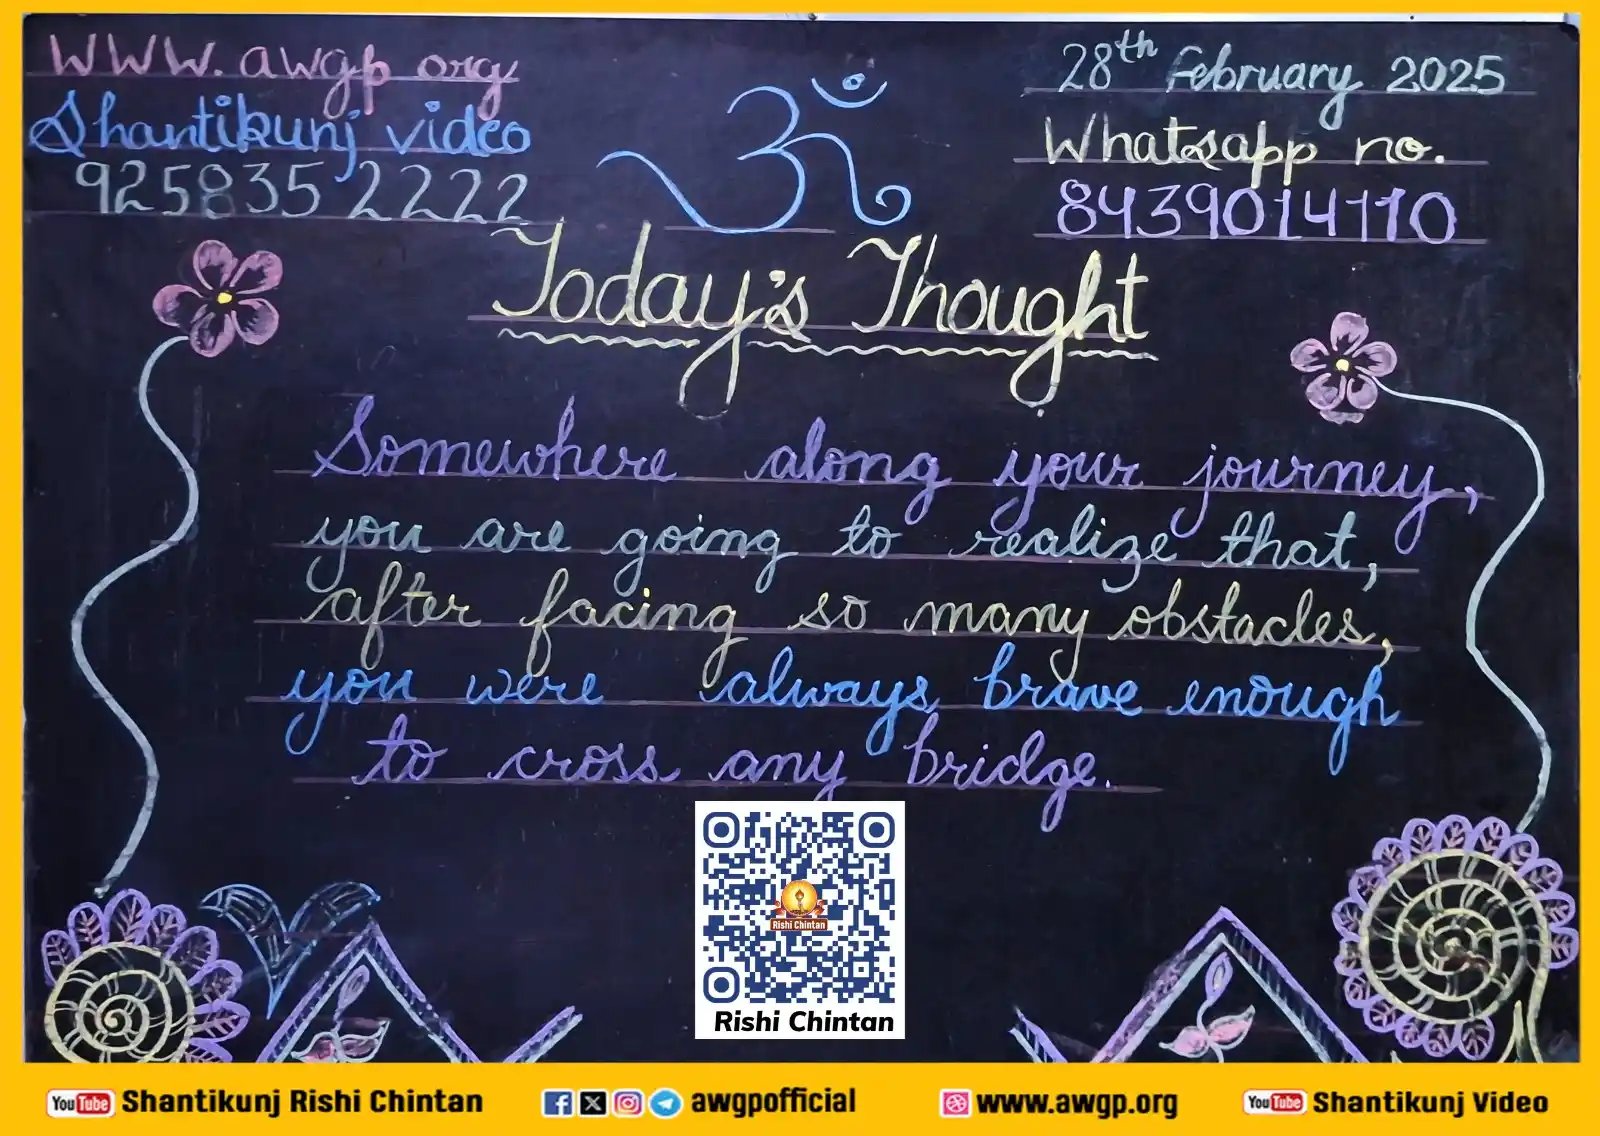 WWW. awgp org
Shantikunj video
925835 2222
ॐ
28th February 2025
Whatsapp no.
8439014110
Today's Thought
Somewhere along your journey,
you are going to realize that,
after facing so many obstacles,
you were always brave enough
to cross any bridge.
Rishi Chintan
Rishi Chintan
YouTube Shantikunj Rishi Chintan
awgpofficial
www.awgp.org
YouTube Shantikunj Video